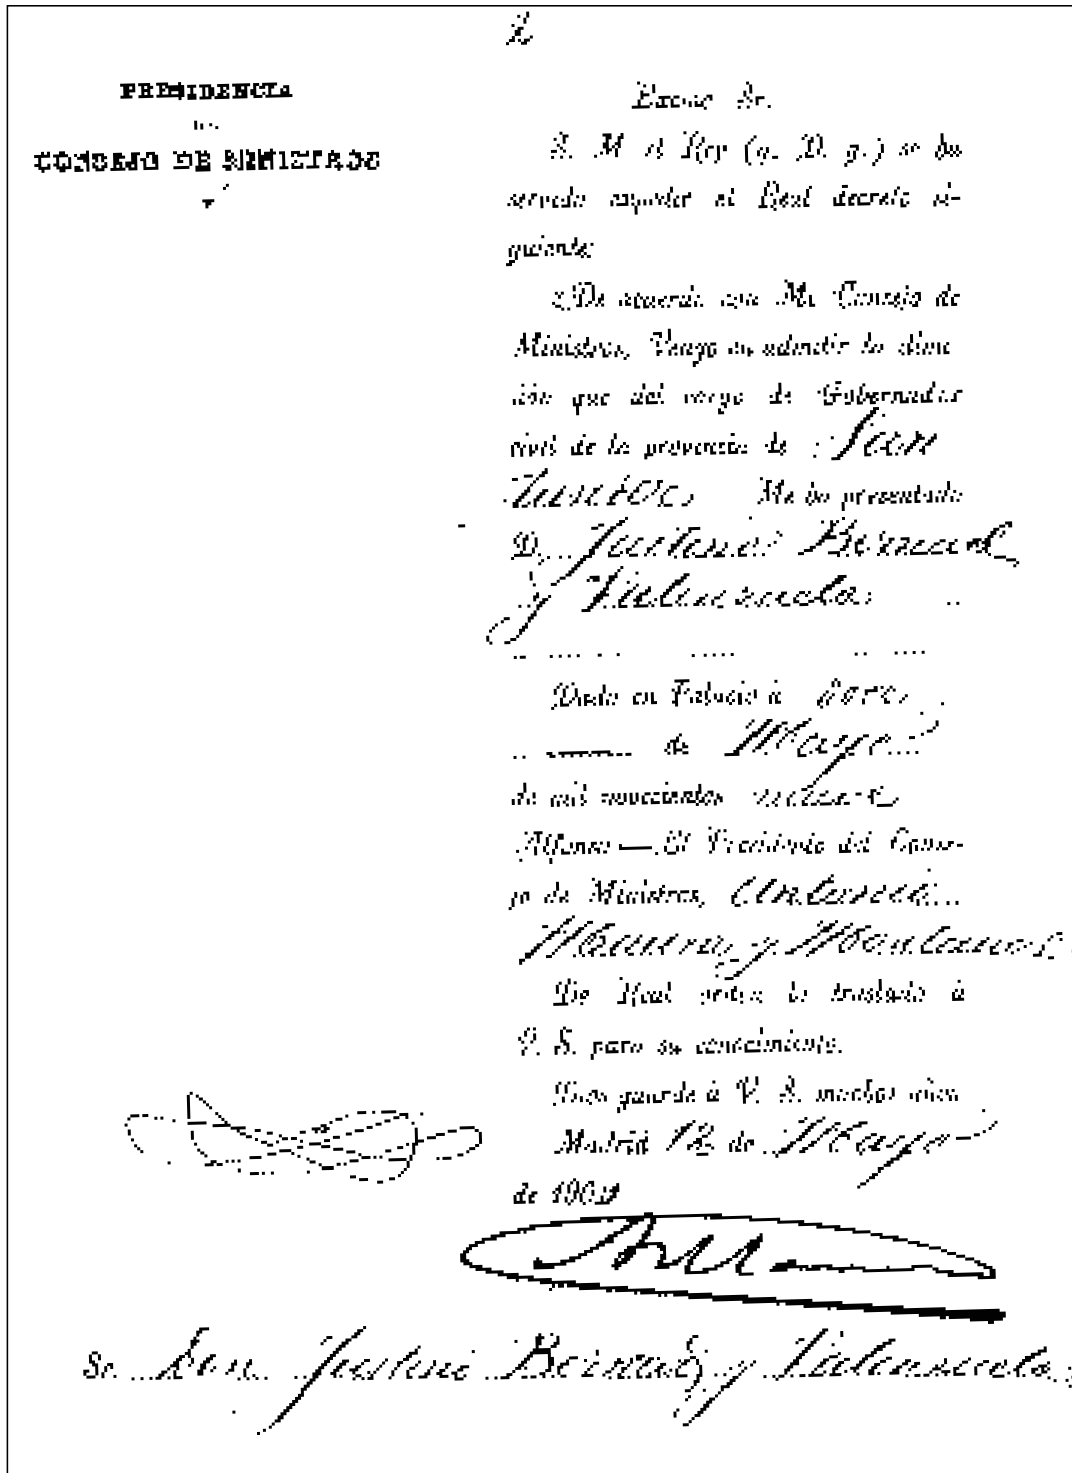 2
PRESIDENCIA
DEL
CONSEJO DE MINISTROS
Excmo Sr.
S. M. el Rey (q. D. g.) se ha
servido expedir el Real decreto si-
guiente:
«De acuerdo con Mi Consejo de
Ministros, Vengo en admitir la dimi
sión que del cargo de Gobernador
civil de la provincia de
Me ha presentado
D. Justino Bernad
y Valenzuela
Dado en Palacio à doce
de Mayo
de mil novecientos nueve
Alfonso — El Presidente del Conse-
jo de Ministros, Antonio
Maura y Montaner.
De Real orden lo traslado à
V. S. para su conocimiento.
Dios guarde à V. S. muchos años
Madrid 12 de Mayo
de 1909
Sr. Don Justino Bernad y Valenzuela